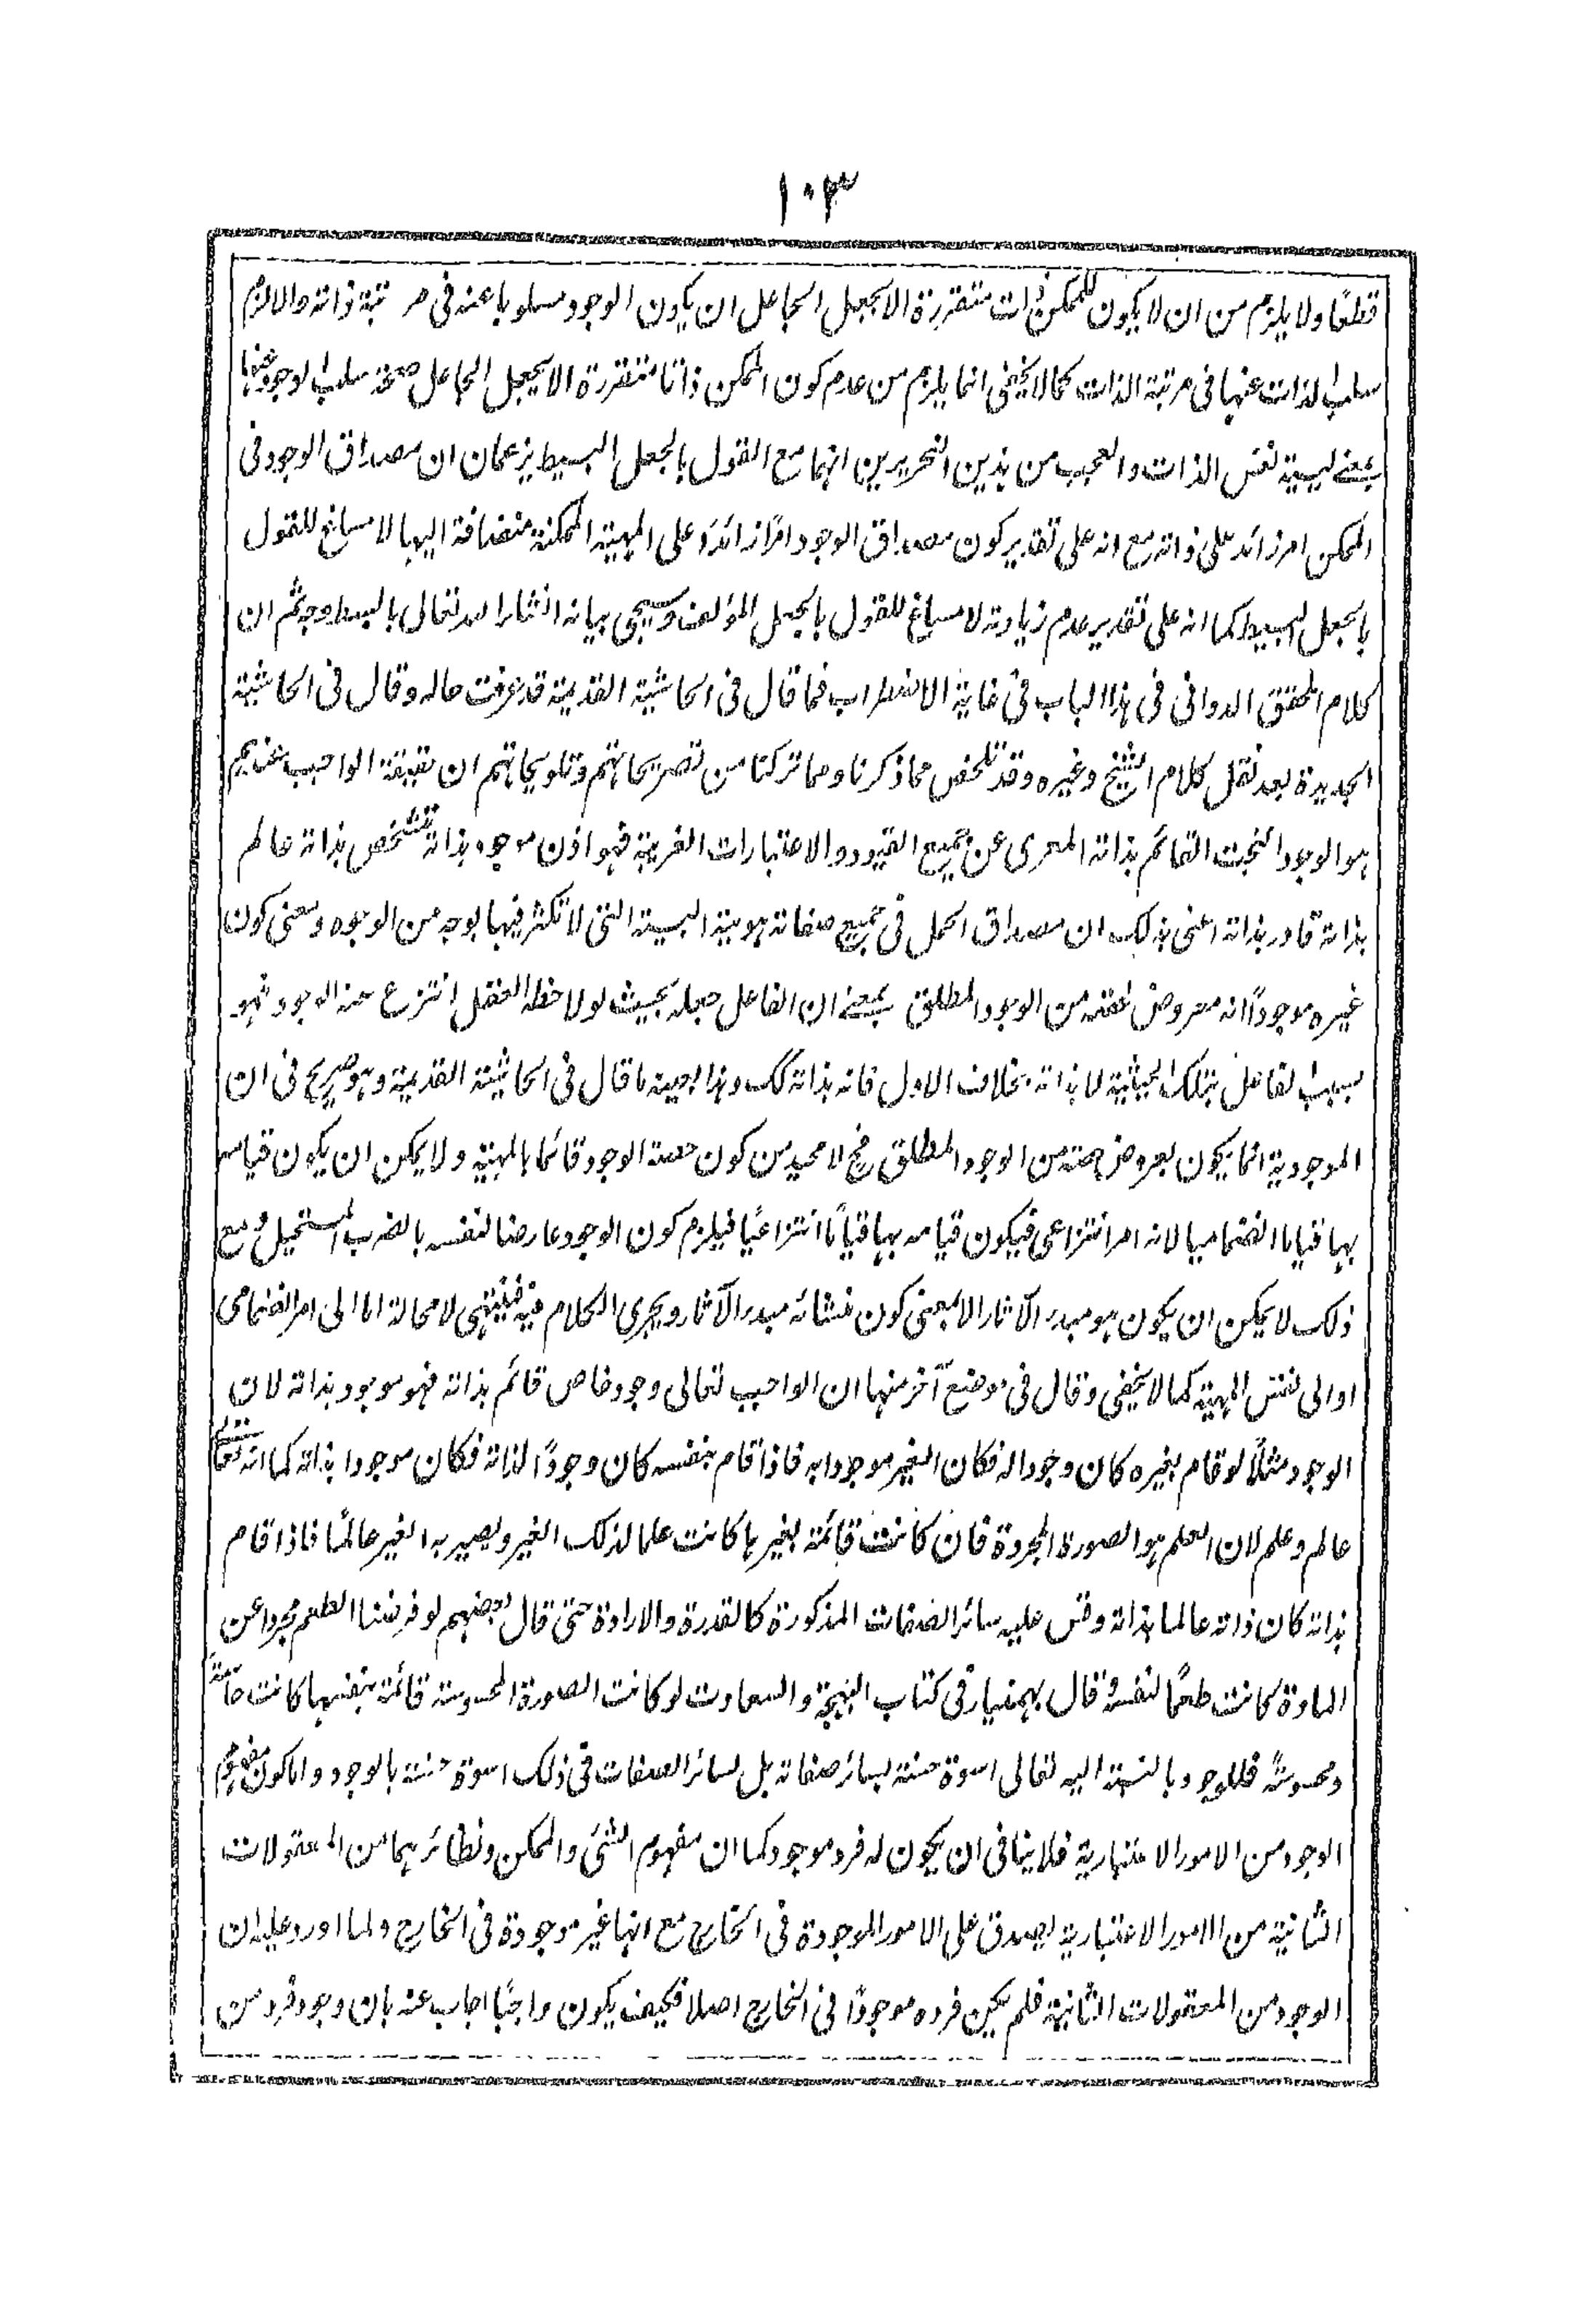 ١٠٣
قطعًا ولا يلزم من ان لا يكون للممكن ذات متقررة الا بجعل الجاعل ان يكون الوجود مسلوبا عنه فى مرتبة ذاته والا لزم
سلب الذات عنها فى مرتبة الذات كما لا يخفى انما يلزم من عدم كون الممكن ذاتا متقررة الا بجعل الجاعل صحة سلب الوجود عنها
بمعنے ليسية نفس الذات والعجب من هذين النحريرين انهما مع القول بالجعل البسيط يزعمان ان مصداق الوجود فى
الممكن امر زائد على ذاته مع انه على تقدير كون مصداق الوجود امرًا زائدًا على المهية الممكنة منضافة اليها لا مساغ للقول
بالجعل البسيط كما انه على تقدير عدم زيادته لا مساغ للقول بالجعل المؤلف وسيجئ بيانه انشاء الله تعالى بالبسط وجه ثم ان
كلام المحقق الدوانى فى هذا الباب فى غاية الاضطراب فما قال فى الحاشية القديمة قد عرفت حاله وقال فى الحاشية
الجديدة بعد نقل كلام الشيخ وغيره وقد تلخص مما ذكرنا ومما تركنا من تصريحاتهم وتلويحاتهم ان حقيقة الواجب عندهم
هو الوجود البحت القائم بذاته المعرى عن جميع القيود والاعتبارات الغريبة فهو اذن موجود بذاته متشخص بذاته عالم
بذاته قادر بذاته اعنى بذلك ان مصداق الحمل فى جميع صفاته هويته البسيطة التى لا تكثر فيها بوجه من الوجوه ومعنى كون
غيره موجودًا انه معروض لحصة من الوجود المطلق بمعنے ان الفاعل جعله بحيث لو لاحظه العقل انتزع عنه الوجود فهو
بسبب الفاعل بتلك الحيثية لا بذاته بخلاف الاول فانه بذاته كك وهذا بعينه ما قال فى الحاشية القديمة وهو صريح فى ان
الموجودية انما يكون بعروض حصة من الوجود المطلق فح لا محيد من كون حصة الوجود قائما بالمهية ولا يمكن ان يكون قيامها
بها قياما انضماميا لانه امر انتزاعى فيكون قيامه بها قيامًا انتزاعيًا فيلزم كون الوجود عارضا لنفسه بالضرب المستحيل ومع
ذلك لا يمكن ان يكون هو مبدء الآثار الا بمعنى كون منشائه مبدء الآثار ويجرى الكلام فيه فينتهى لا محالة اما الى امر انضمامى
او الى نفس المهية كما لا يخفى وقال فى موضع آخر منها ان الواجب تعالى وجود خاص قائم بذاته فهو موجود بذاته لان
الوجود مثلًا لو قام بغيره كان وجودا له فكان الغير موجودا به فاذا قام بنفسه كان وجودًا لذاته فكان موجودا بذاته كما انه تعالى
عالم وعلم لان العلم هو الصورة المجردة فان كانت قائمة بغيرها كانت علما لذلك الغير ويصير به الغير عالمًا فاذا قام
بذاته كان ذاته عالما بذاته وقس عليه سائر الصفات المذكورة كالقدرة والارادة حتى قال بعضهم لو فرضنا الطعم مجردا عن
المادة كانت طعمًا لنفسه وقال بهمنيار فى كتاب البهجة والسعادت لو كانت الصورة المحسوسة قائمة بنفسها كانت حاسة
ومحسوسةً فللوجود بالنسبة اليه تعالى اسوة حسنة بسائر صفاته بل لسائر الصفات فى ذلك اسوة حسنة بالوجود واما كون مفهوم
الوجود من الامور الاعتبارية فلا ينافى ان يكون له فرد موجود كما ان مفهوم الشئ والممكن ونظائرهما من المعقولات
الثانية من الامور الاعتبارية يصدق على الامور الموجودة فى الخارج مع انها غير موجودة فى الخارج ولما اورد عليه ان
الوجود من المعقولات الثانية فلم يكن فرده موجودًا فى الخارج اصلا فكيف يكون واجبًا اجاب عنه بان وجود فرد من